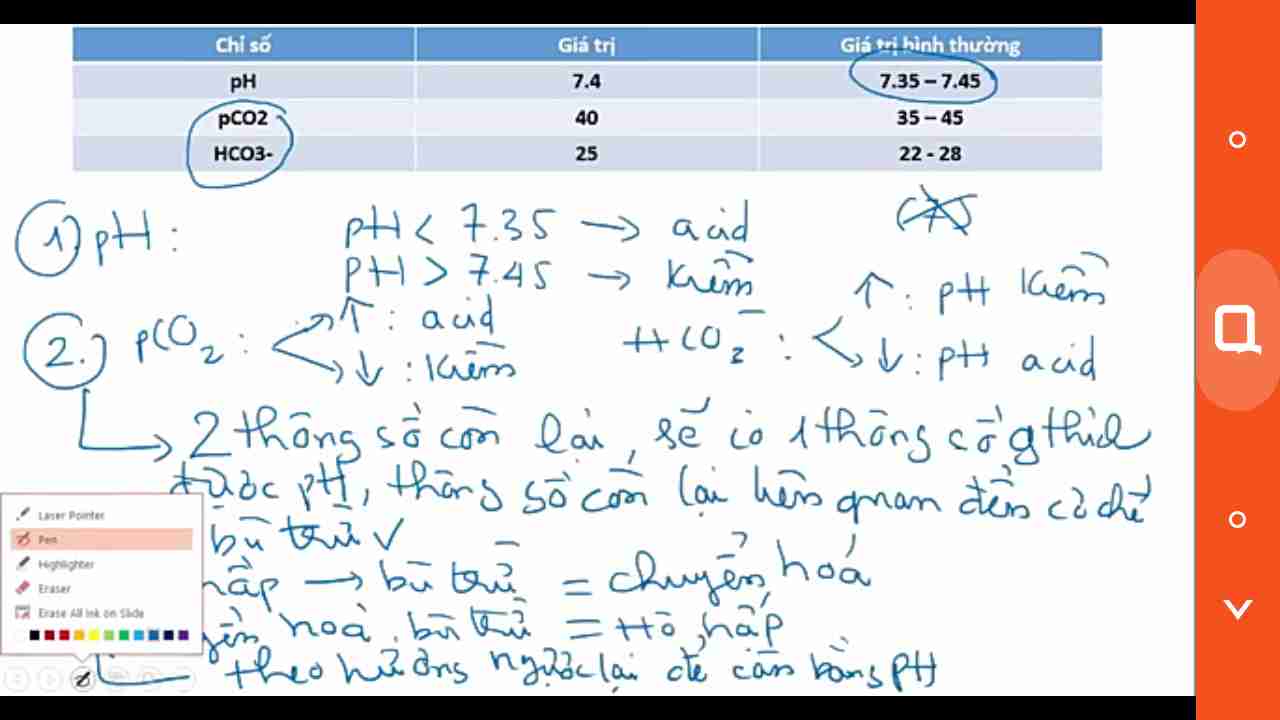 Chỉ số Giá trị Giá trị bình thường
pH 7.4 7.35 – 7.45
pCO2 40 35 – 45
HCO3- 25 22 - 28
1) pH : pH < 7.35 → acid
pH > 7.45 → Kiềm
2. pCO2 : ↑ : acid
↓ : Kiềm
HCO3- : ↑ : pH Kiềm
↓ : pH acid
→ 2 thông số còn lại, sẽ có 1 thông số gthích
được pH, thông số còn lại liên quan đến cơ chế
bù trừ
hấp → bù trừ = chuyển hoá
yển hoá bù trừ = Hô hấp
theo hướng ngược lại để cân bằng pH
Laser Pointer
Pen
Highlighter
Eraser
Erase All Ink on Slide